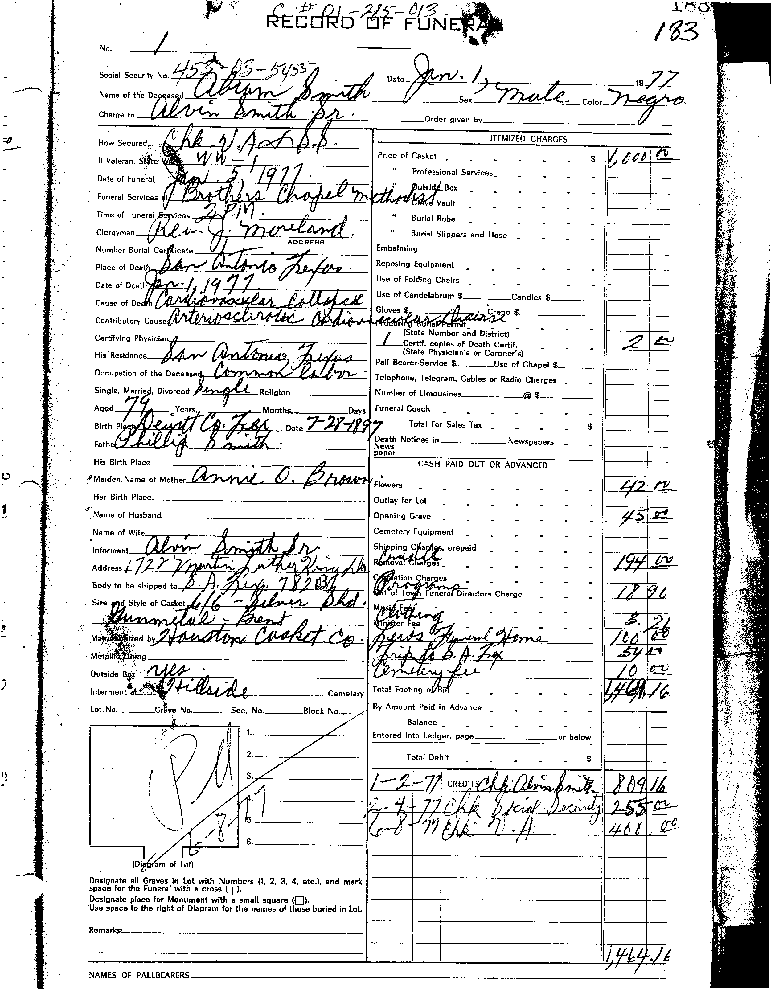 C# 01-215-013
RECORD OF FUNERAL
183
No. 1
Social Security No.
Date Jan. 1, 1977
Name of the Deceased Abram Smith Sex Male Color Negro
Charge to Alvin Smith Sr. Order given by
How Secured Chk V.A & S.S.
If Veteran, State War WW-1
Date of Funeral Jan. 5 1977
Funeral Services at Brothers Chapel Methodist
Time of Funeral Services 2 PM
Clergyman Rev. J. Moreland
ADDRESS
Number Burial Certificate
Place of Death San Antonio Texas
Date of Death Jan 1, 1977
Cause of Death Cardiovascular Collapse
Contributory Cause Arteriosclerotic Cardiovascular Disease
Certifying Physician
His Residence San Antonio, Texas
Occupation of the Deceased Common labor
Single, Married, Divorced Single Religion
Aged 79 Years Months, Days
Birth Place Dewitt Co. Tex Date 7-28-1897
Father Phillip Smith
His Birth Place
Maiden Name of Mother Annie O. Brown
Her Birth Place
Name of Husband
Name of Wife
Informant Alvin Smith Sr.
Address 1727 Martin Luther King
Body to be shipped to S.A. Tex
Size and Style of Casket 6/6 - Silver Shd.
Gunmetal -
Manufactured by Houston Casket Co.
Metallic Lining
Outside Box yes
Interment at Hillside Cemetery
Lot No. Grave No. Sec. No. Block No.
1.
2.
3.
5.
6.
Pd
6-8-77
(Diagram of Lot)
Designate all Graves in Lot with Numbers (1, 2, 3, 4, etc.), and mark
space for the Funeral with a cross (†).
Designate place for Monument with a small square (□).
Use space to the right of Diagram for the names of those buried in Lot.
Remarks
NAMES OF PALLBEARERS
ITEMIZED CHARGES
Price of Casket $ 1,000 00
" Professional Services
" Outside Box
" Grave Vault
" Burial Robe
" Burial Slippers and Hose
Embalming
Reposing Equipment
Use of Folding Chairs
Use of Candelabrum $ Candles $
Gloves $
(State Number and District)
1 Certif. copies of Death Certif. 2 00
(State Physician's or Coroner's)
Pall Bearer Service $ Use of Chapel $
Telephone, Telegram, Cables or Radio Charges
Number of Limousines @ $
Funeral Coach
Total For Sales Tax $
Death Notices in Newspapers
News
paper
CASH PAID OUT OR ADVANCED
Flowers 42 00
Outlay for Lot
Opening Grave 45 00
Cemetery Equipment
Shipping Charges, prepaid
Removal Charges 194 00
Cremation Charges
Programs
Out of Town Funeral Directors Charge 18 90
Clothing
Minister Fee
Funeral Home 100 00
Trip to S.A. Tex
Cemetery fee 10 00
Total Footing of Bill 1,464.16
By Amount Paid in Advance
Balance
Entered into Ledger, page or below
Total Debit $
1-2-77 CREDIT Chk Alvin Smith 809.16
2-4-77 Chk Social Security 255 00
6-8-77 Chk V.A 400 00
1,464.16